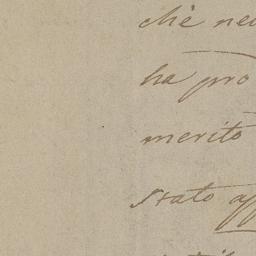 chè nel
ha pro
merito
stato ap